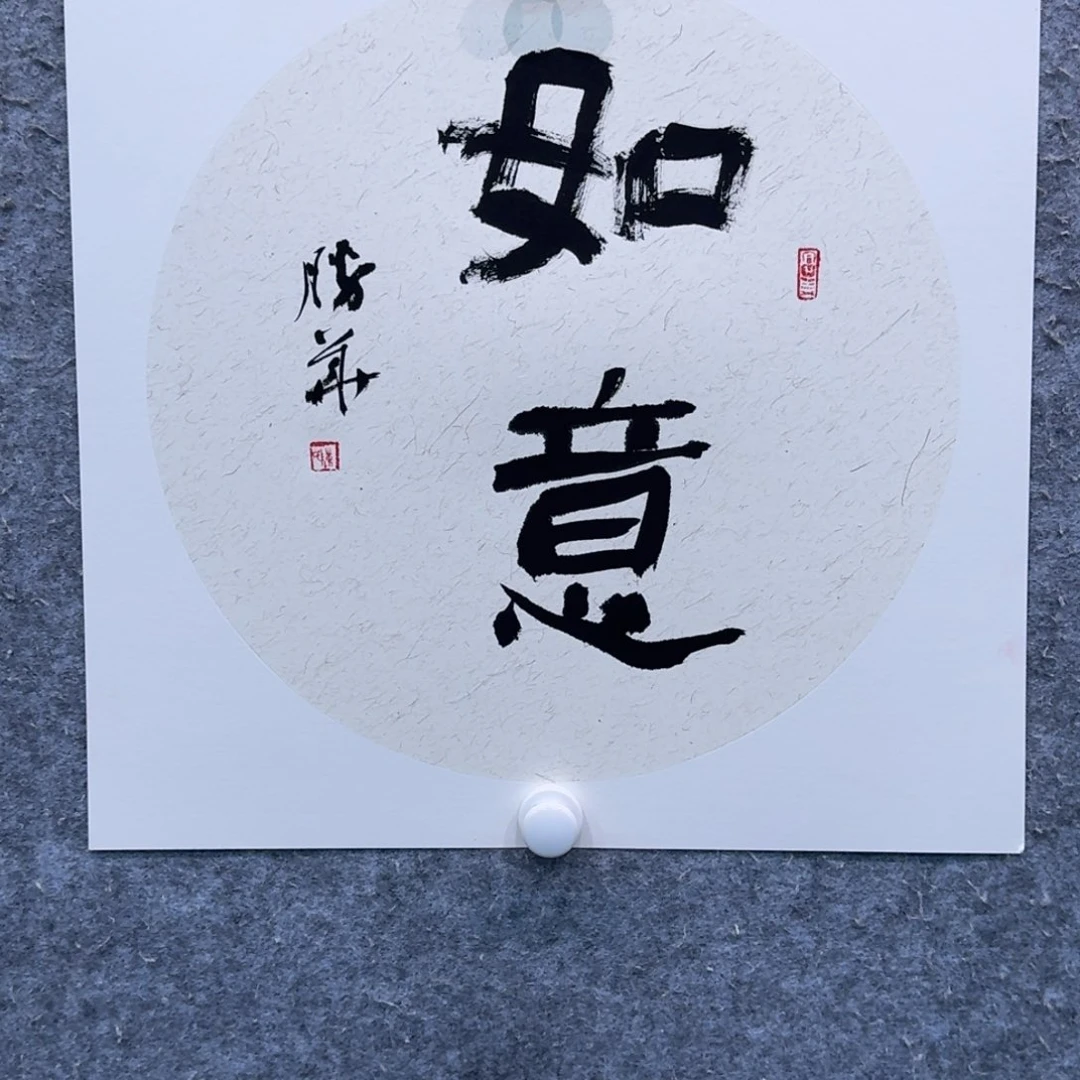 如意
勝華